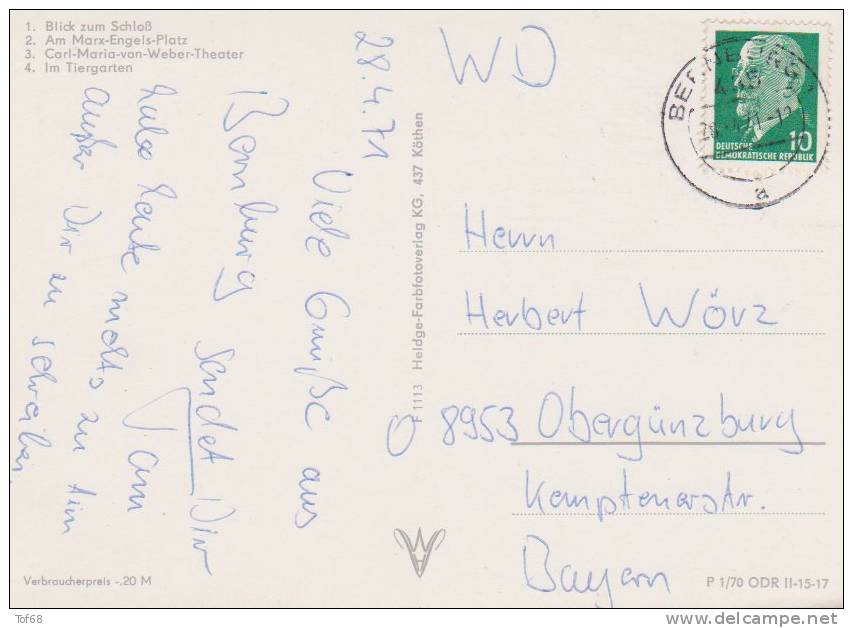 1. Blick zum Schloß
2. Am Marx-Engels-Platz
3. Carl-Maria-von-Weber-Theater
4. Im Tiergarten
28.4.71
Viele Grüße aus
Bernburg sendet Dir
Jani
habe heute nichts zu tun
außer Dir zu schreiben
Heldge-Farbfotoverlag KG, 437 Köthen
F 1113
WD
BERNBURG
a
10
DEUTSCHE
DEMOKRATISCHE REPUBLIK
Herrn
Herbert Wörz
O 8953 Obergünzburg
Kemptenerstr.
Bayern
Verbraucherpreis -.20 M
P 1/70 ODR II-15-17
Tof68